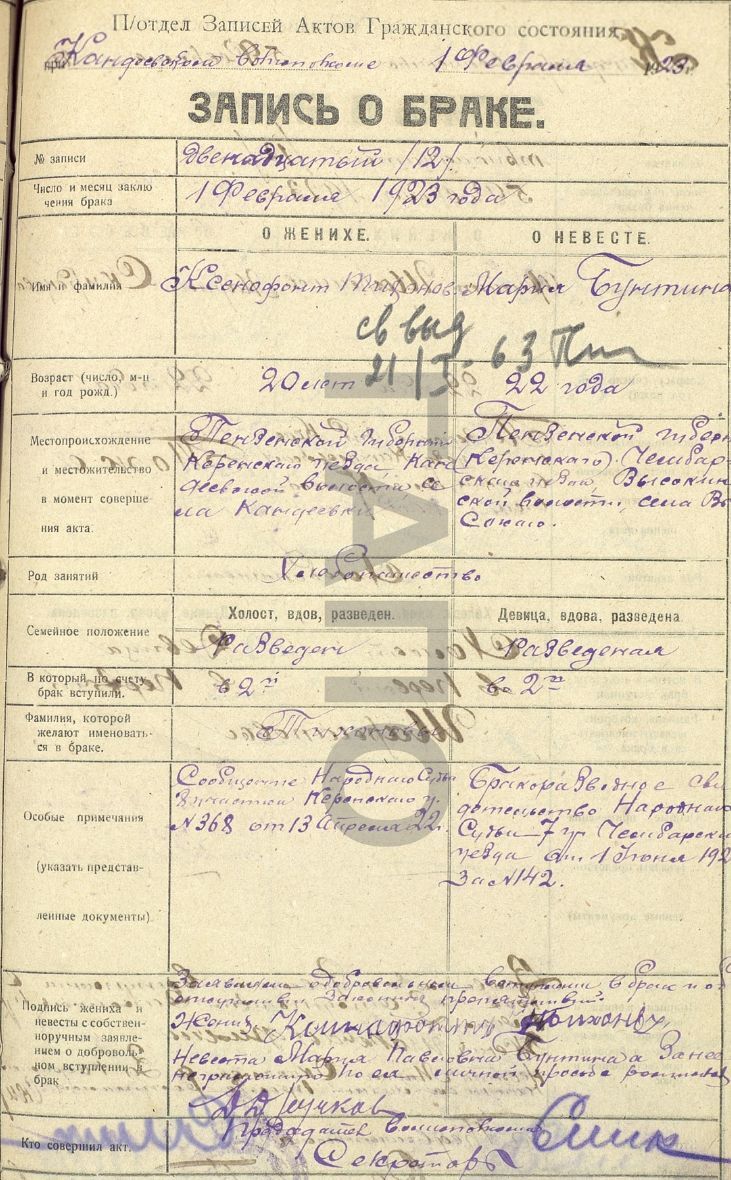 П/отдел Записей Актов Гражданского состояния
при Кандевском Волисполкоме 1 Февраля 1923 г.
ЗАПИСЬ О БРАКЕ.
№ записи
двенадцатый /12/
Число и месяц заклю
чения брака
1 Февраля 1923 года
О ЖЕНИХЕ.
О НЕВЕСТЕ.
Имя и фамилия
Ксенофонт Тихонов
Мария Бунтина
св выд
21/I - 63
Возраст (число, м-ц
и год рожд.)
20 лет
22 года
Местопроисхождение
и местожительство
в момент соверше-
ния акта.
Пензенской Губернии
Керенского уезда, Кан
деевской волости се
ла Кандеевки
Пензенской губерн
Керенского) Чембар-
ского уезда, Высокин
ской волости, села Вы
сокаго.
Род занятий
Хлебопашество
Семейное положение
Холост, вдов, разведен.
Девица, вдова, разведена.
Разведен
Разведеная
В который по счету
брак вступили.
в 2й
во 2й
Фамилия, которой
желают именовать-
ся в браке.
Тихоновы
Особые примечания
(указать представ-
ленные документы)
Сообщение Народнаго Судьи
участка Керенского у.
№ 368 от 13 Апреля 22 г.
Бракоразводное сви
детельство Народнаго
Судьи 7 уч Чембарски
уезда от 1 Июня 192
За № 142.
Подпись жениха и
невесты с собствен-
норучным заявле-
нием о доброволь-
ном вступлении в
брак
Заявляем о добровольном вступлении в брак и об
отсутствии законных препятствий
Жених Тихонов
Невеста Мария Павловна Бунтина а За нее
неграмотную по ея личной просьбе
Кто совершил акт.
Председатель Волисполкома
Секретарь
ГАПО